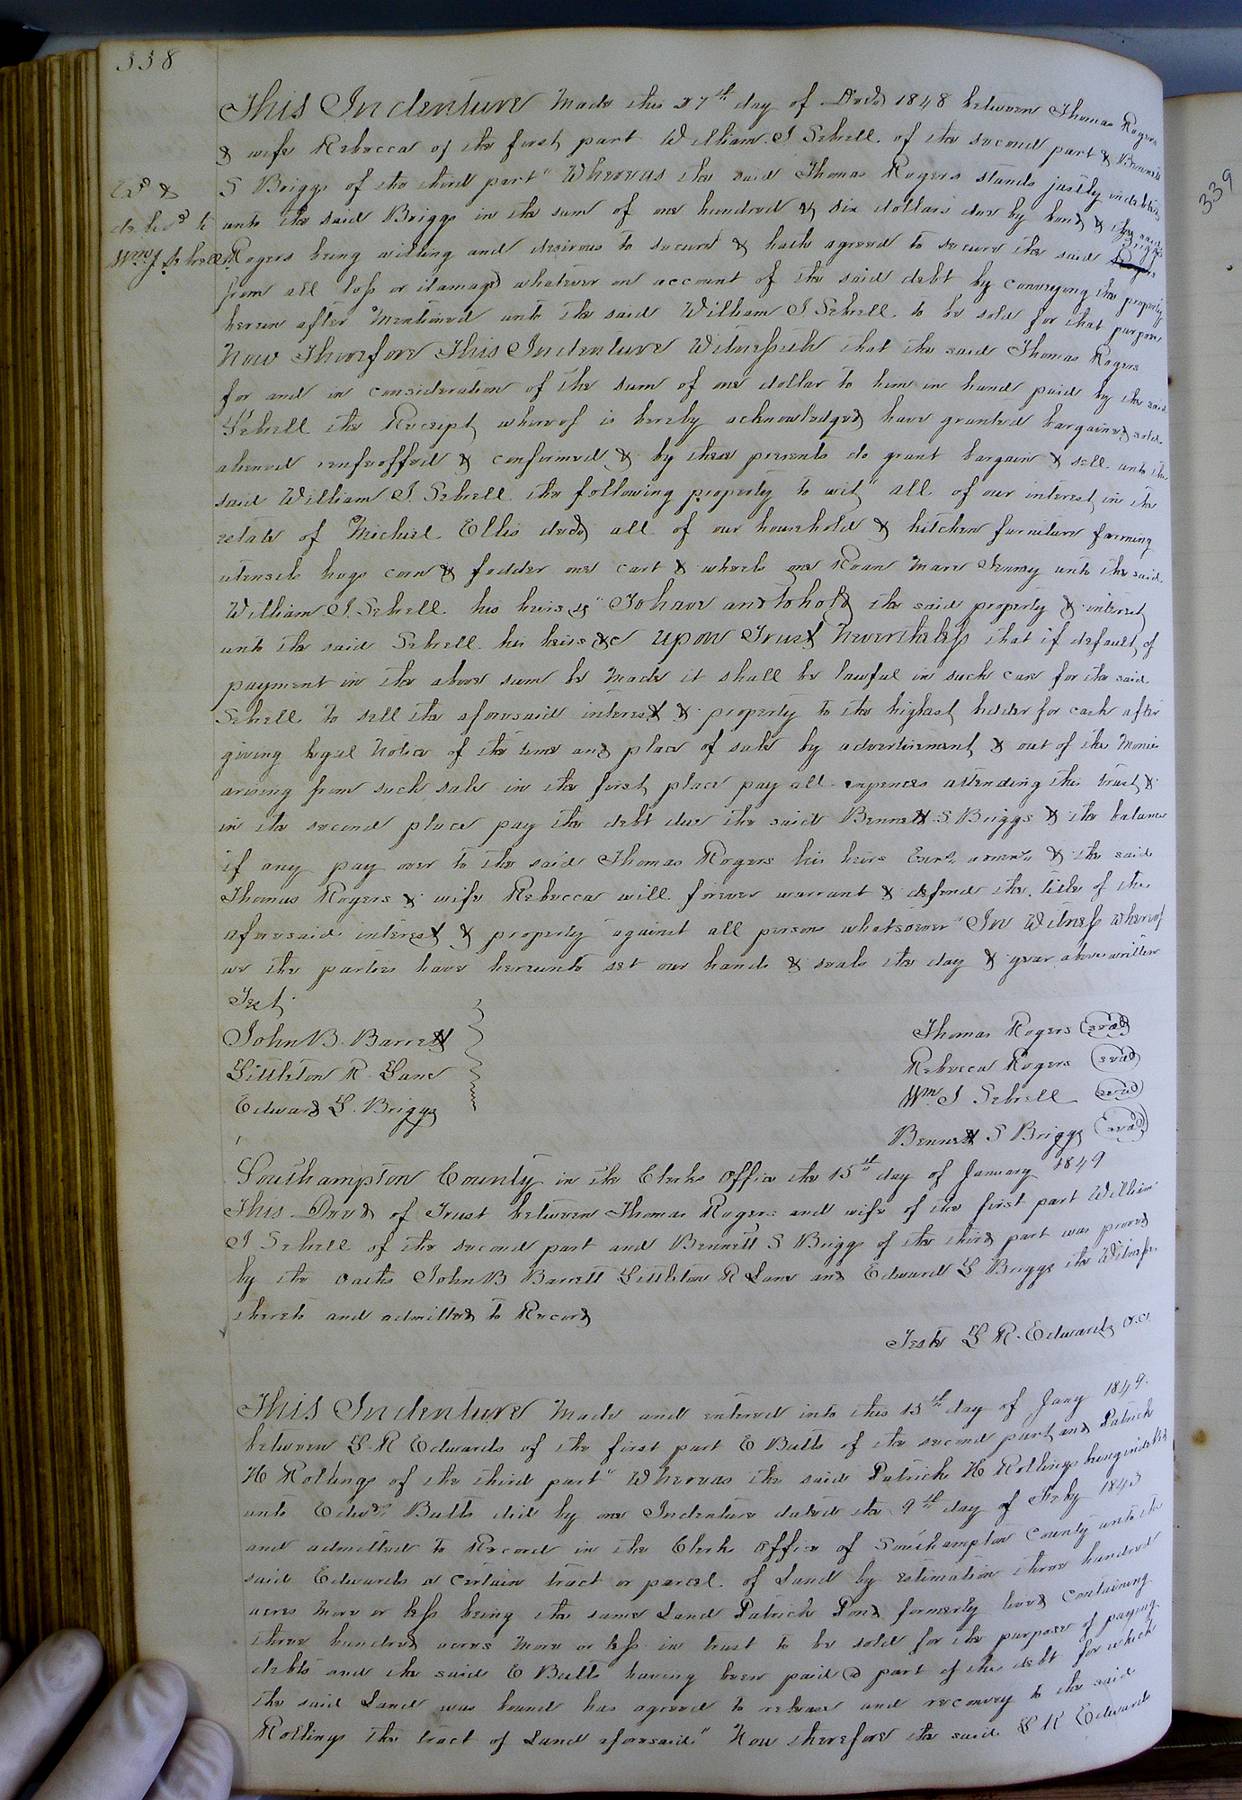 338
This Indenture Made this 27th day of Decr 1848 between Thomas Rogers
& wife Rebecca of the first part William J Sebrell of the second part & Bennett
S Briggs of the third part" Whereas the said Thomas Rogers stands justly indebted
unto the said Briggs in the sum of one hundred & six dollars due by bond & the said
Exd &
deliv'd to
Wm J Sebrell
Rogers being willing and desirous to secure & hath agreed to secure the said Briggs
from all loss or damage whatever on account of the said debt by conveying the property
herein after Mentioned unto the said William J Sebrell to be sold for that purpose
Now Therefore This Indenture Witnesseth that the said Thomas Rogers
for and in consideration of the sum of one dollar to him in hand paid by the said
Sebrell the Receipt whereof is hereby acknowledged have granted bargained sold
aliened enfeoffed & confirmed & by these presents do grant bargain & sell unto the
said William J Sebrell the following property to wit" all of our interest in the
estate of Michiel Ellis decd all of our household & kitchen furniture farming
utensils hogs corn & fodder one cart & wheels one Roan Mare Jenny unto the said
William J. Sebrell his heirs &c" To have and to hold the said property & interest
unto the said Sebrell his heirs &c upon Trust Nevertheless that if default of
payment in the above sum be Made it shall be lawful in such case for the said
Sebrell to sell the aforesaid interest & property to the highest bidder for cash after
giving legal Notice of the time and place of sale by advertisement & out of the Monies
arising from such sale in the first place pay all expences attending this trust &
in the second place pay the debt due the said Bennett S Briggs & the balance
if any pay over to the said Thomas Rogers his heirs Exrs admrs & the said
Thomas Rogers & wife Rebecca will forever warrant & defend the title of the
aforesaid interest & property against all persons whatsoever" In Witness Whereof
we the parties have hereunto set our hands & seals the day & year above written
Test
John B. Barrett
Thomas Rogers (seal)
Littleton R Lane
Rebecca Rogers (seal)
Edward L. Briggs
Wm J Sebrell (seal)
Bennett S Briggs (seal)
Southampton County in the Clerks Office the 15th day of January 1849
This Deed of Trust between Thomas Rogers and wife of the first part William
J Sebrell of the second part and Bennett S Briggs of the third part was proved
by the oaths John B Barrett Littleton R Lane and Edward L Briggs the Witnesses
thereto and admitted to Record
Teste L R. Edwards c.c.
This Indenture Made and entered into this 15th day of Jany 1849
between L. R Edwards of the first part E Butts of the second part and Patrick
H Rollings of the third part" Whereas the said Patrick H Rollings being indebted
unto Edwd Butts did by one Indenture dated the 9th day of Feby 1843
and admitted to Record in the Clerks Office of Southampton County unto the
said Edwards a certain tract or parcel of Land by estimation three hundred
acres More or less being the same Land Patrick Pond formerly lived containing
three hundred acres More or less in trust to be sold for the purpose of paying
debts and the said E Butts having been paid a part of the debt for which
the said Land was bound has agreed to release and reconvey to the said
Rollings the tract of Land aforesaid" Now therefore the said L R Edwards
339